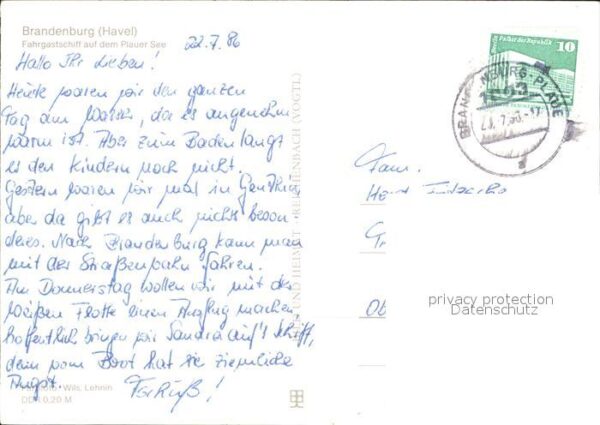 Brandenburg (Havel)
Fahrgastschiff auf dem Plauer See
22.7.86
Hallo Ihr Lieben!
Heute waren wir den ganzen
Tag am Wasser, da es angenehm
warm ist. Aber zum Baden langt
es den Kindern noch nicht.
Gestern waren wir mal in Genthin,
aber da gibt es auch nichts beson
deres. Nach Brandenburg kann man
mit der Straßenbahn fahren.
Am Donnerstag wollen wir mit der
Weißen Flotte einen Ausflug machen,
hoffentlich bringen wir Sandra auf's Schiff,
denn vom Boot hat sie ziemliche
Angst.
Wils, Lehnin
DDR 0,20 M
UND HEIMAT REICHENBACH (VOGTL)
Berlin Palast der Republik 10
BRANDENBURG-PLAUE
1803
Fam.
privacy protection
Datenschutz